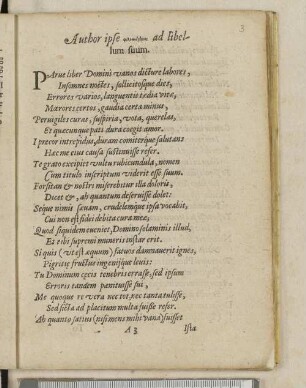 3
Author ipse ad libel-
lum suum.
PArue liber Domini vanos dicture labores,
Insomnes noctes, sollicitosque dies,
Errores varios, languentis tædia vitæ,
Mærores certos, gaudia certa minus,
Peruigiles curas, suspiria, vota, querelas,
Et quæcunque pati dura coegit amor.
I precor intrepidus, duram comiterque salutans
Hæc me eius causa sustinuisse refer.
Te grato excipiet vultu rubicundula, nomen
Cum titulo inscriptum viderit esse suum.
Forsitan & nostri miserebitur illa doloris,
Dicet &, ah quantum deseruisse dolet:
Seque nimis sæuam, crudelemque ipsa vocabit,
Cui non est fidei debita cura meæ,
Quod siquidem eueniet, Domino solaminis illud,
Et tibi supremi muneris instar erit.
Si quis (vt est æquum) fatuos damnauerit ignes,
Pigritiæ fructus ingenijque leuis:
Tu Dominum cæcis tenebris errasse, sed ipsum
Erroris tandem pænituisse sui,
Me quoque re vera nec tot, nec tanta tulisse,
Sed ficta ad placitum multa fuisse refer.
Ah quanto satius (nisi mens mihi vana) fuisset
A 3 Ista